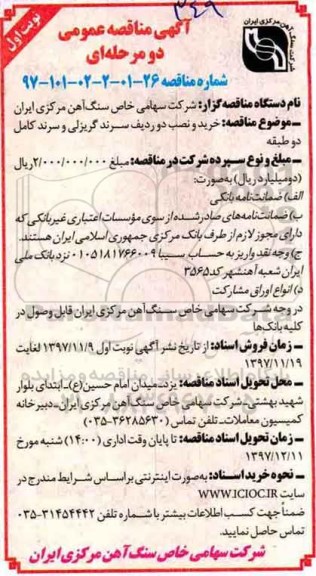 ۳۴۹
نوبت اول
آگهی مناقصه عمومی
دو مرحله‌ای
شرکت سنگ آهن مرکزی ایران
شماره مناقصه ۲۶-۰۱-۲-۰۲-۱۰۱-۹۷
نام دستگاه مناقصه‌گزار: شرکت سهامی خاص سنگ‌آهن مرکزی ایران
ـ موضوع مناقصه: خرید و نصب دو ردیف سرند گریزلی و سرند کامل
دو طبقه
ـ مبلغ و نوع سپرده شرکت در مناقصه: مبلغ ۲/۰۰۰/۰۰۰/۰۰۰ریال
(دومیلیارد ریال) به‌صورت:
الف) ضمانت‌نامه بانکی
ب) ضمانت‌نامه‌های صادرشده از سوی مؤسسات اعتباری غیربانکی که
دارای مجوز لازم از طرف بانک مرکزی جمهوری اسلامی ایران هستند.
ج) وجه نقد واریز به حساب سیبا ۰۱۰۵۱۸۱۷۶۶۰۰۹ نزد بانک ملی
ایران شعبه آهنشهر کد۳۵۶۵
د) انواع اوراق مشارکت
در وجه شرکت سهامی خاص سنگ آهن مرکزی ایران قابل وصول در
کلیه بانک‌ها
ـ زمان فروش اسناد: از تاریخ نشر آگهی نوبت اول ۱۳۹۷/۱۱/۹ لغایت
۱۳۹۷/۱۱/۱۹
ـ محل تحویل اسناد مناقصه: یزدـ میدان امام حسین(ع)ـ ابتدای بلوار
شهید بهشتی ـ شرکت سهامی خاص سنگ آهن مرکزی ایران ـ دبیرخانه
کمیسیون معاملات ـ تلفن تماس (۳۶۲۸۵۶۳۰-۰۳۵)
ـ زمان تحویل اسناد مناقصه: تا پایان وقت اداری (۱۴:۰۰) شنبه مورخ
۱۳۹۷/۱۲/۱۱
ـ نحوه خرید اسناد: به‌صورت اینترنتی براساس شرایط مندرج در
سایت WWW.ICIOC.IR
ضمناً جهت کسب اطلاعات بیشتر با شماره تلفن ۳۱۴۵۴۴۴۲-۰۳۵
تماس حاصل نمایید.
شرکت سهامی خاص سنگ آهن مرکزی ایران